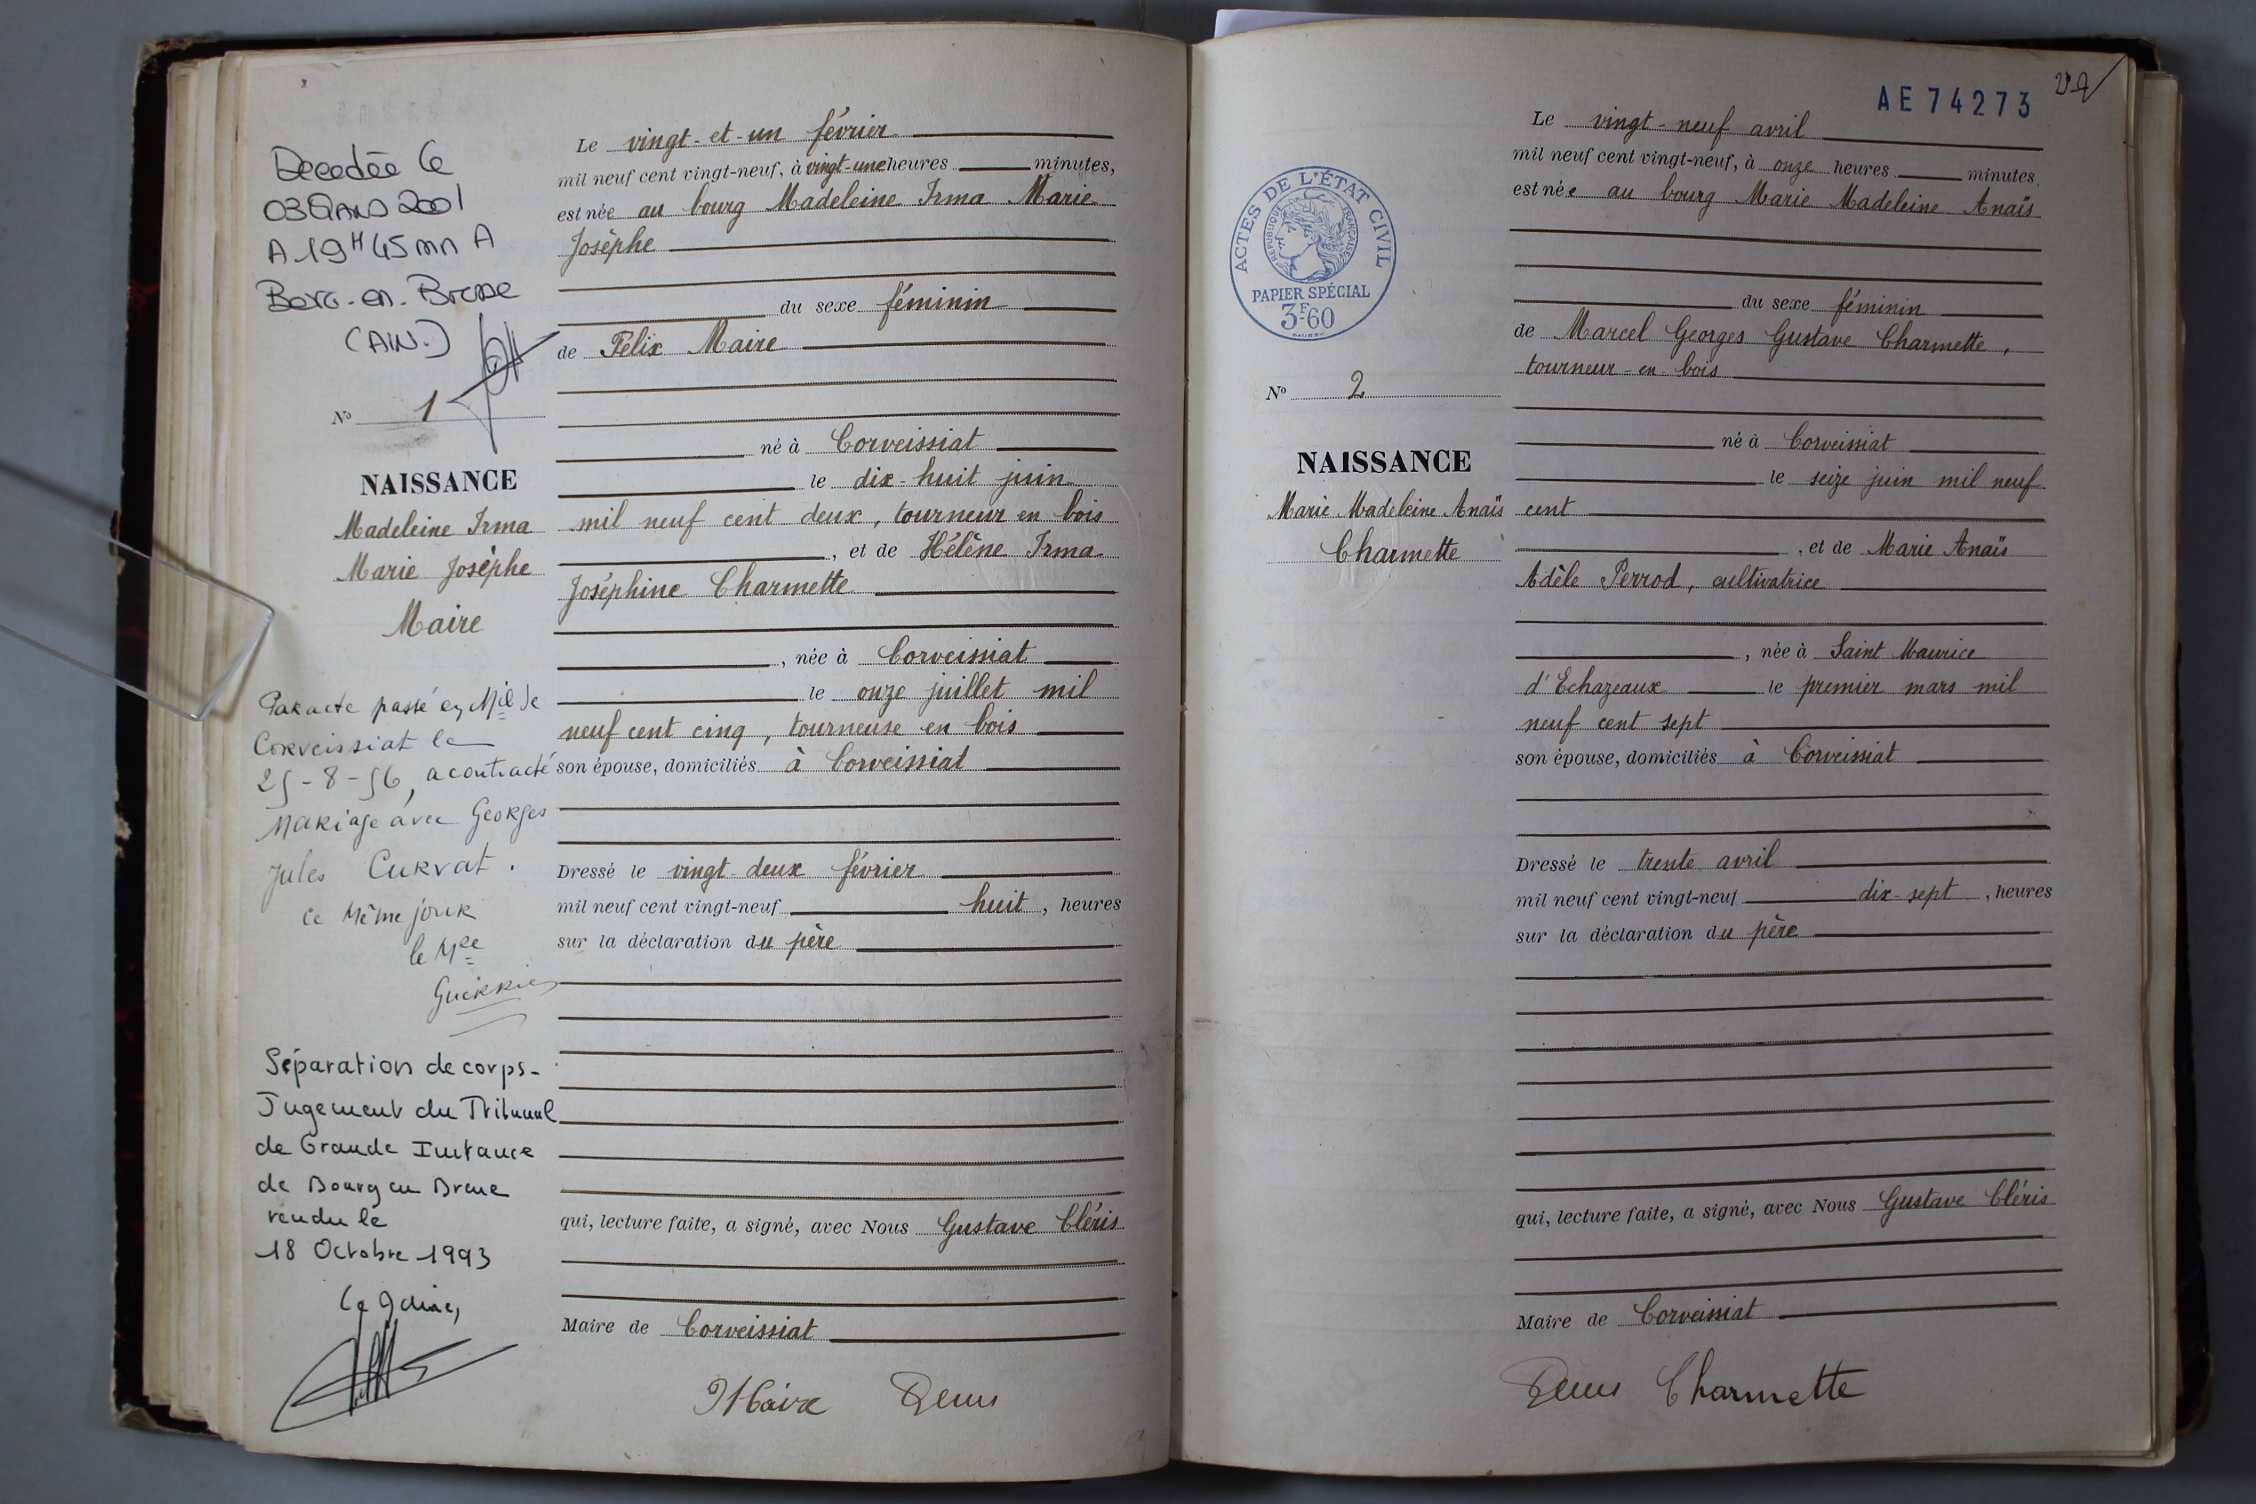 Decedée le
03 Mars 2001
A 19H45mn A
Bourg-en-Bresse
(AIN.)
No 1
NAISSANCE
Madeleine Irma
Marie Josèphe
Maire
Par acte passé en Mie de
Corveissiat le
25-8-56, a contracté
Mariage avec Georges
Jules Curvat.
Ce Même jour
le Mre
Séparation de corps-
Jugement du Tribunal
de Grande Instance
de Bourg en Bresse
rendu le
18 Octobre 1993
Le vingt-et-un février
mil neuf cent vingt-neuf, à vingt-une heures minutes,
est née au bourg Madeleine Irma Marie
Josèphe
du sexe féminin
de Félix Maire
né à Corveissiat
le dix-huit juin
mil neuf cent deux, tourneur en bois
, et de Hélène Irma
Joséphine Charmette
, née à Corveissiat
le onze juillet mil
neuf cent cinq, tourneuse en bois
son épouse, domiciliés à Corveissiat
Dressé le vingt-deux février
mil neuf cent vingt-neuf huit, heures
sur la déclaration du père
qui, lecture faite, a signé, avec Nous Gustave Cléris
Maire de Corveissiat
Maire
AE 74273
ACTES DE L'ÉTAT CIVIL
RÉPUBLIQUE FRANÇAISE
PAPIER SPÉCIAL
3F60
No 2
NAISSANCE
Marie Madeleine Anaïs
Charmette
Le vingt-neuf avril
mil neuf cent vingt-neuf, à onze heures minutes
est née au bourg Marie Madeleine Anaïs
du sexe féminin
de Marcel Georges Gustave Charmette,
tourneur-en-bois
né à Corveissiat
le seize juin mil neuf
cent
, et de Marie Anaïs
Adèle Perrod, cultivatrice
, née à Saint Maurice
d'Echazeaux le premier mars mil
neuf cent sept
son épouse, domiciliés à Corveissiat
Dressé le trente avril
mil neuf cent vingt-neuf dix-sept, heures
sur la déclaration du père
qui, lecture faite, a signé, avec Nous Gustave Cléris
Maire de Corveissiat
Charmette